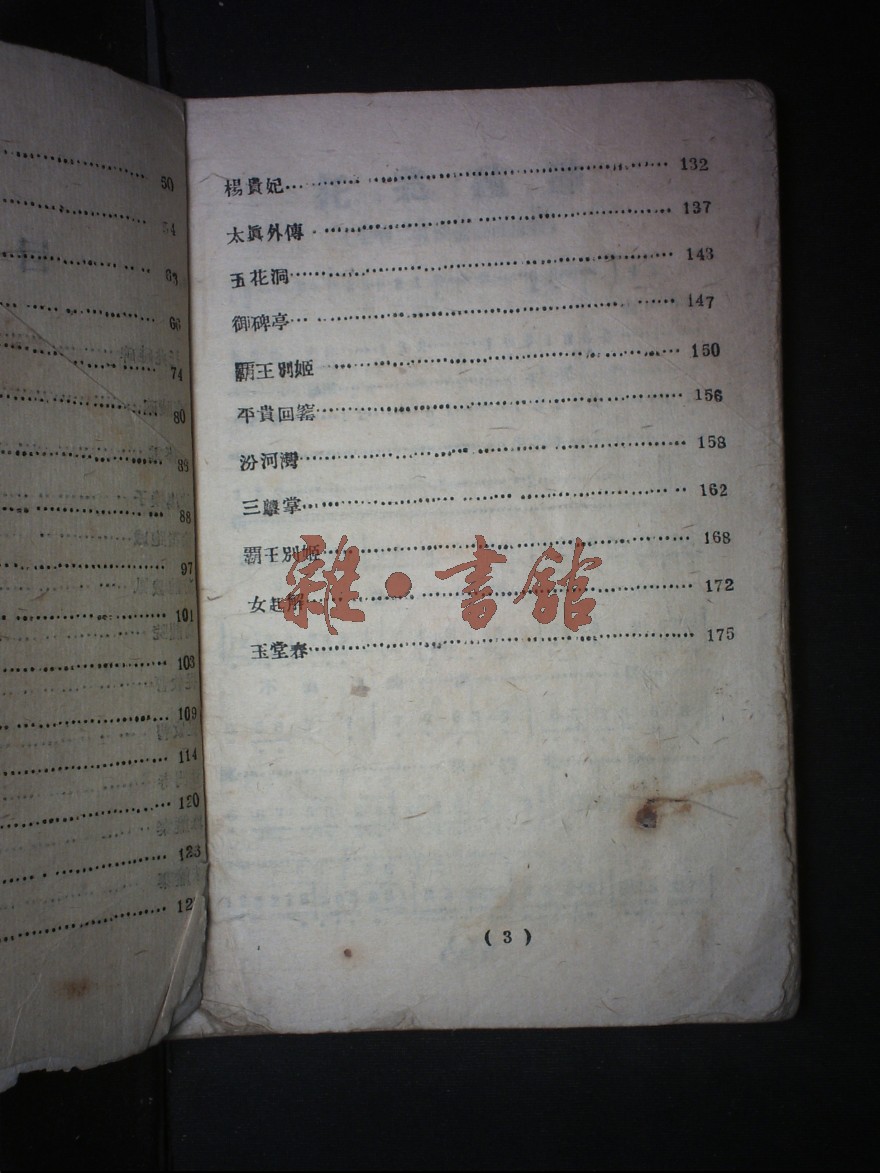 50
54
66
74
80
88
97
101
103
109
114
120
123
楊貴妃 132
太眞外傳 137
五花洞 143
御碑亭 147
霸王別姬 150
平貴回窰 156
汾河灣 158
三擊掌 162
霸王別姬 168
女起解 172
玉堂春 175
(3)
雜·書舘